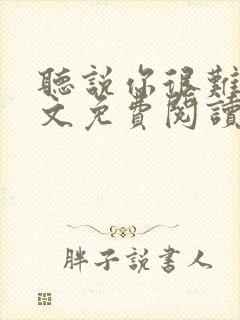 聽說你很難
文免費閱讀
胖子說書人